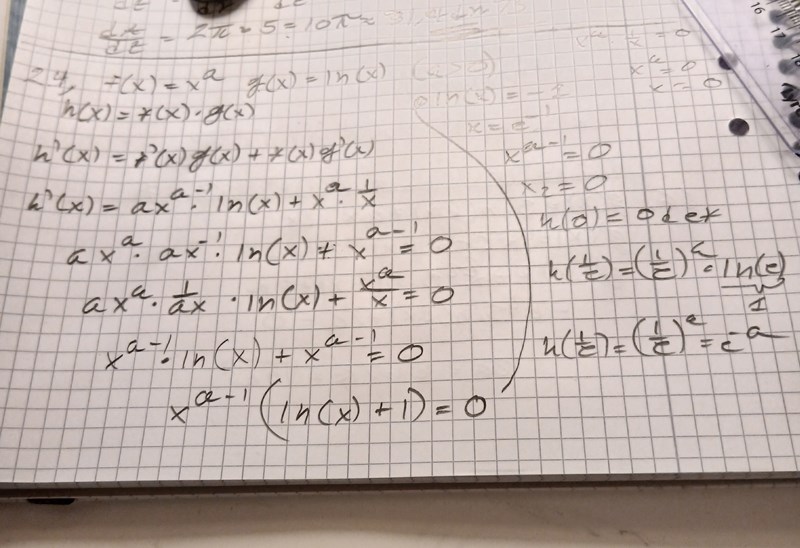 = 2π · 5 = 10π ≈
24. f(x) = x^a g(x) = ln(x) (x>0)
h(x) = f(x) · g(x)
h'(x) = f'(x) g(x) + f(x) g'(x)
h'(x) = ax^{a-1} · ln(x) + x^a · 1/x
ax^a · ax^{-1} · ln(x) + x^{a-1} = 0
ax^a · 1/ax · ln(x) + x^a/x = 0
x^{a-1} · ln(x) + x^{a-1} = 0
x^{a-1} (ln(x) + 1) = 0
x^a = 0
x = 0
ln(x) = -1
x = e^{-1}
x^{a-1} = 0
x_2 = 0
h(0) = 0 d ex
h(1/e) = (1/e)^a · ln(e)
1
h(1/e) = (1/e)^a = e^{-a}
16
17